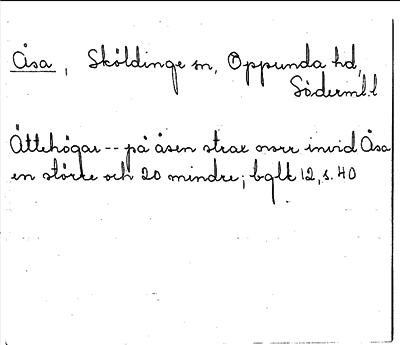 Åsa, Sköldinge sn, Oppunda hd,
Söderml.l
Ättehögar -- på åsen strax norr invid Åsa
en större och 20 mindre; bglt 12, s. 40